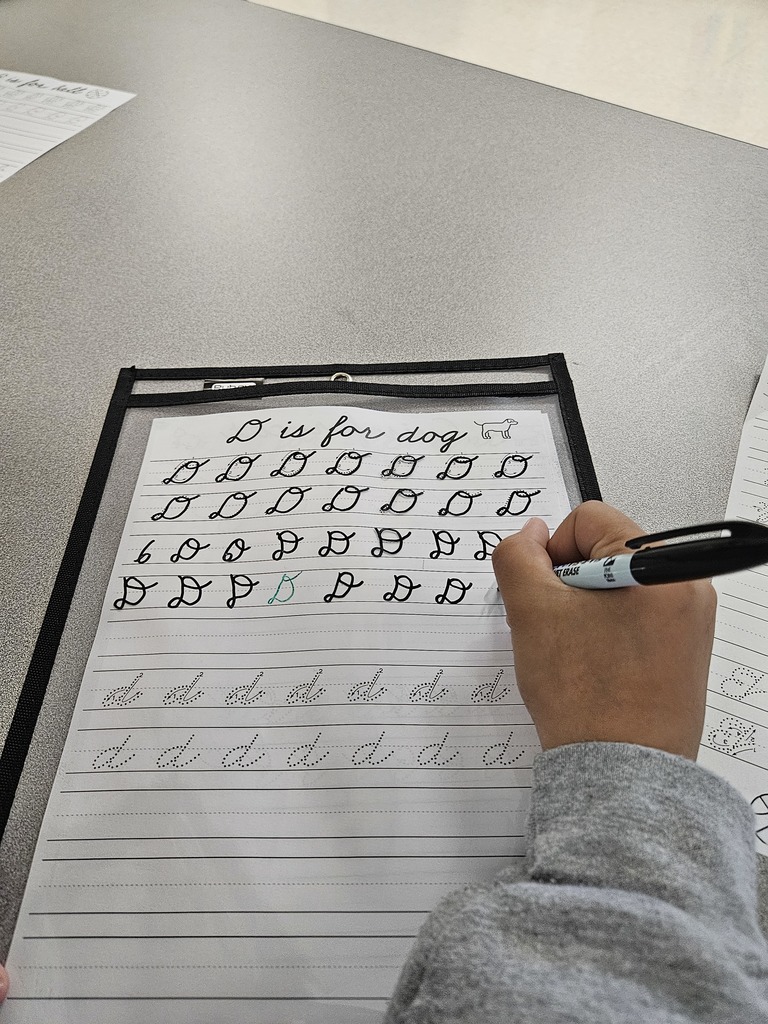 is for ball
D is for dog
D D D D D D D
D D D D D D D
6 D D D D D D D
D D D D D D D
d d d d d d d
d d d d d d d